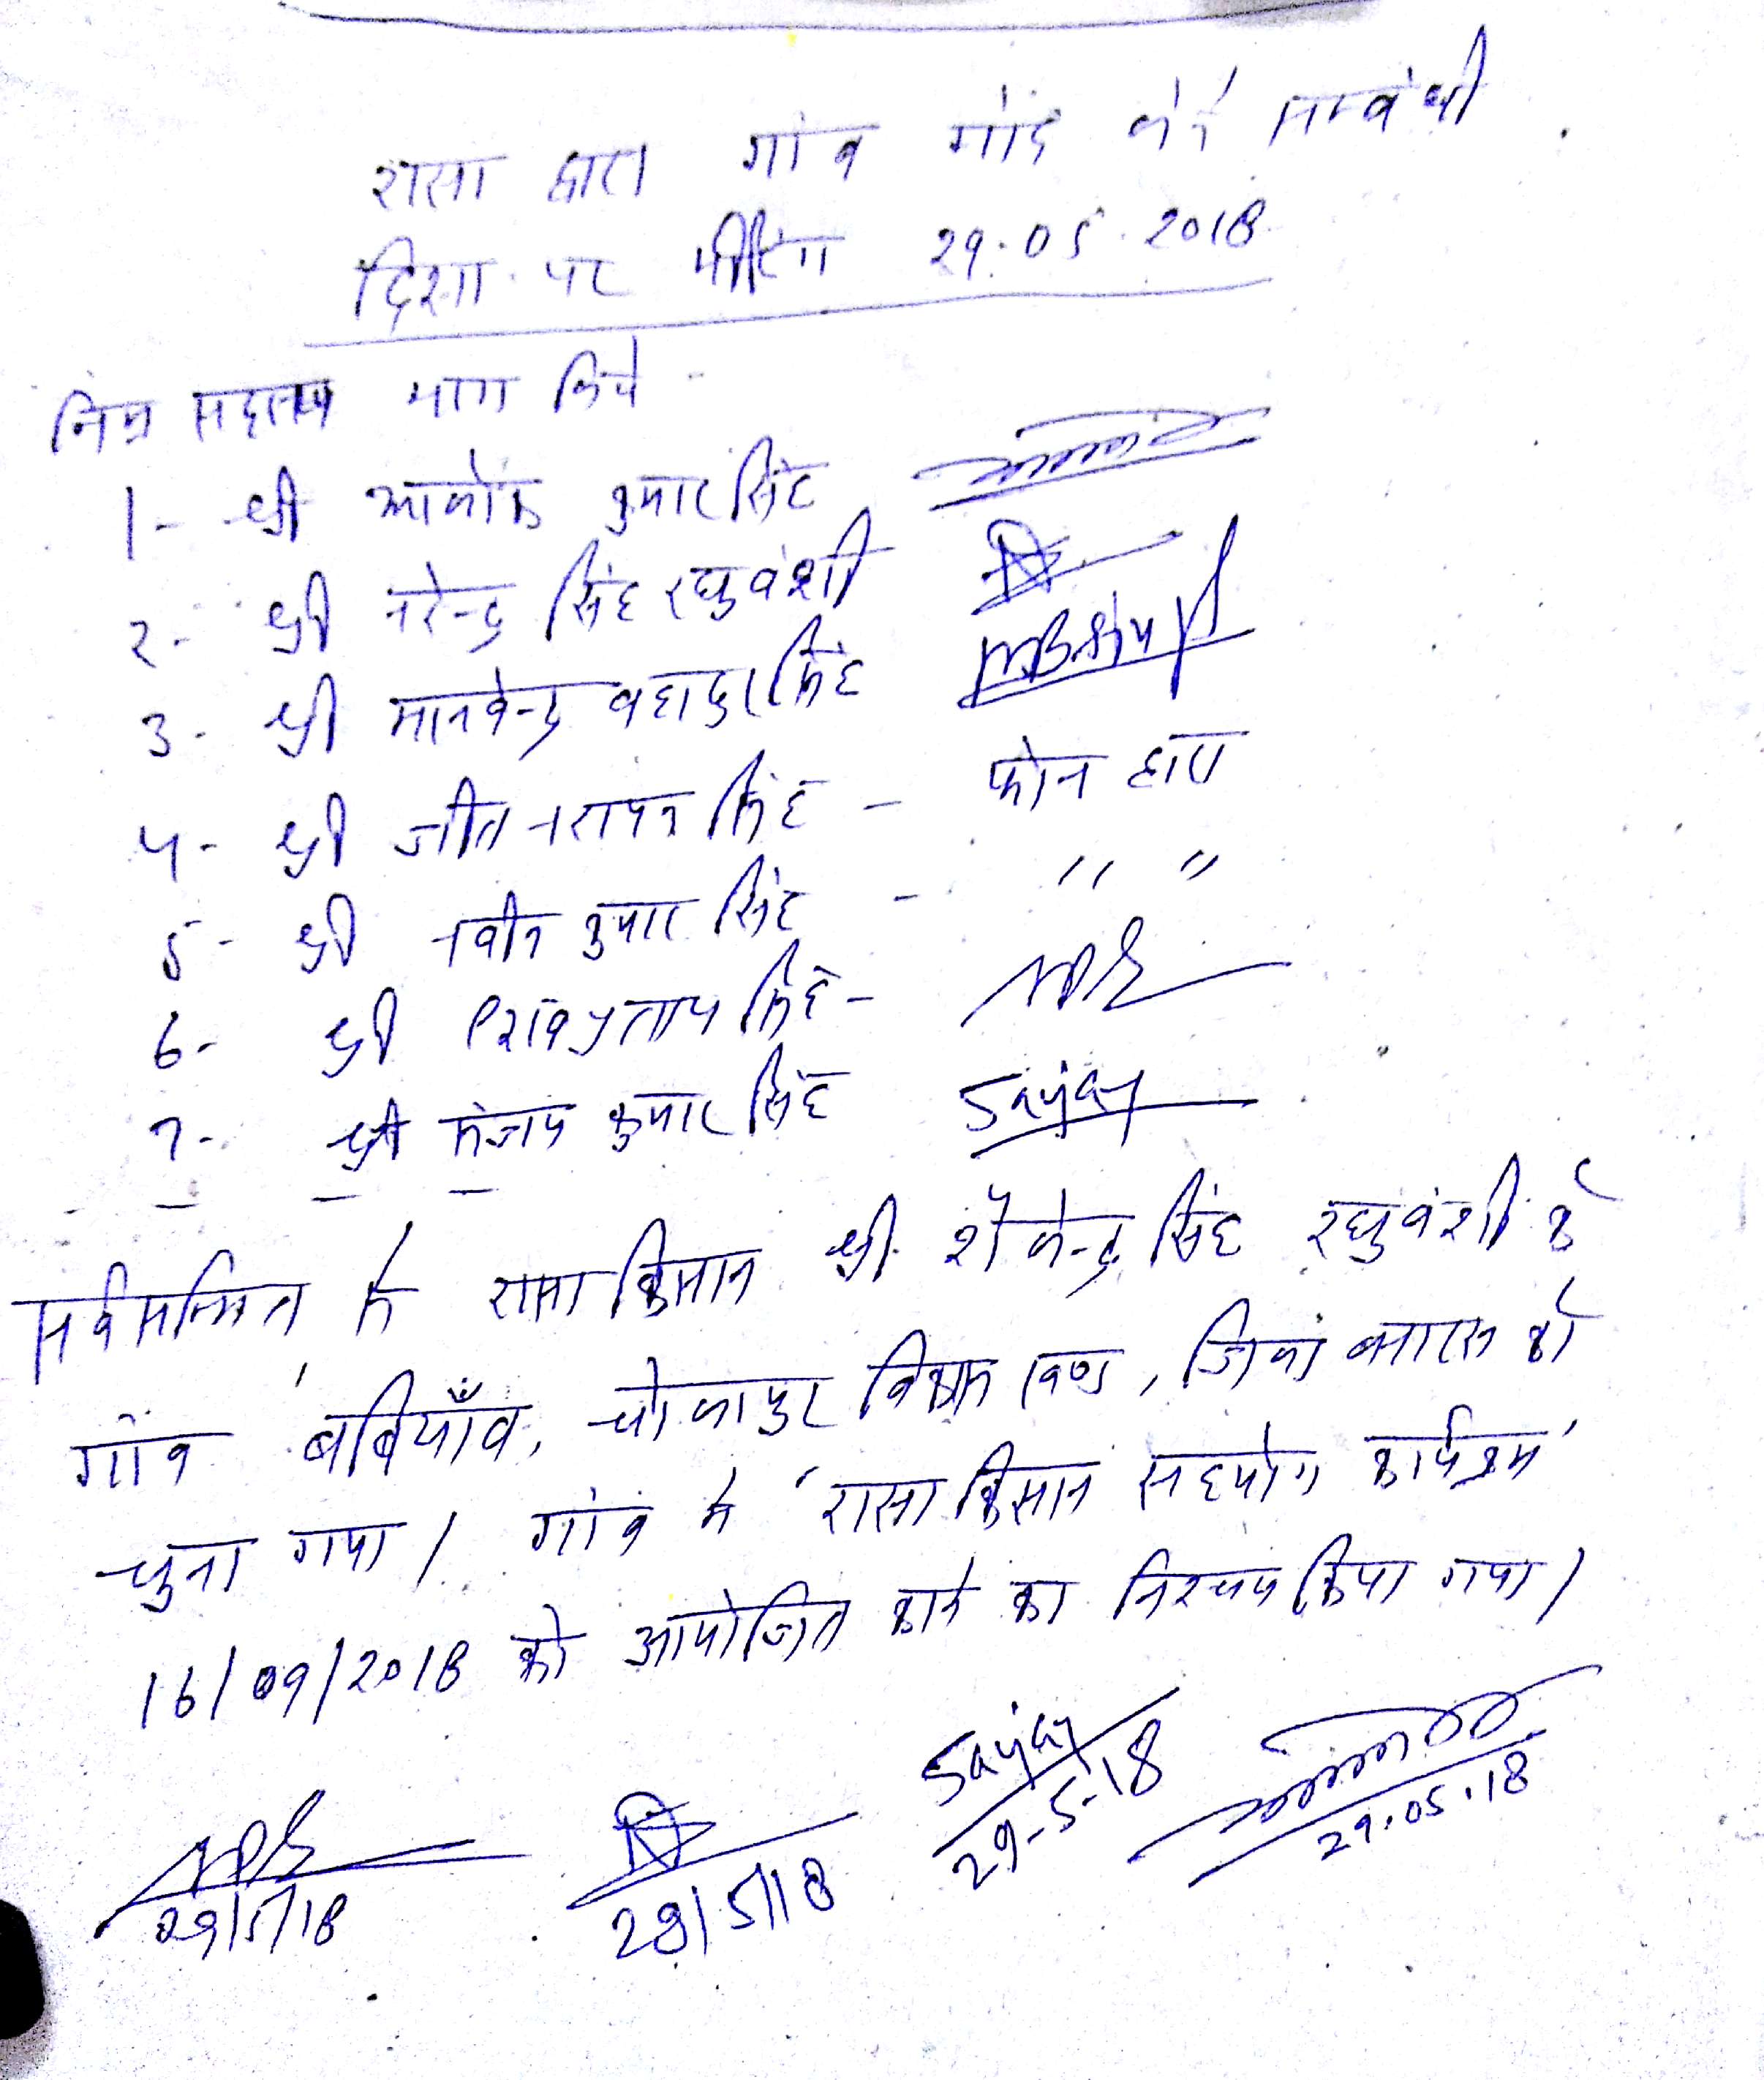 रासा द्वारा गांव गोद लेने सम्बंधी
दिशा पर मीटिंग 29.05.2018
निम्न सदस्य भाग लिये -
1- श्री आलोक कुमार सिंह
2- श्री नरेन्द्र सिंह रघुवंशी
3- श्री मानवेन्द्र बहादुर सिंह MBSingh
4- श्री जीत नरायन सिंह - फोन द्वारा
5- श्री नवीन कुमार सिंह - " "
6- श्री शिव प्रताप सिंह -
7- श्री संजय कुमार सिंह Sanjay
सर्वसम्मित से रासा किसान श्री शैलेन्द्र सिंह रघुवंशी के
गाँव बबियाँव, चोलापुर विकास खण्ड, जिला बनारस को
चुना गया। गांव मे 'रासा किसान सहयोग कार्यक्रम'
16/09/2018 को आयोजित करने का निश्चय किया गया।
29/5/18 29/5/18 Sanjay 29-5-18 29.05.18